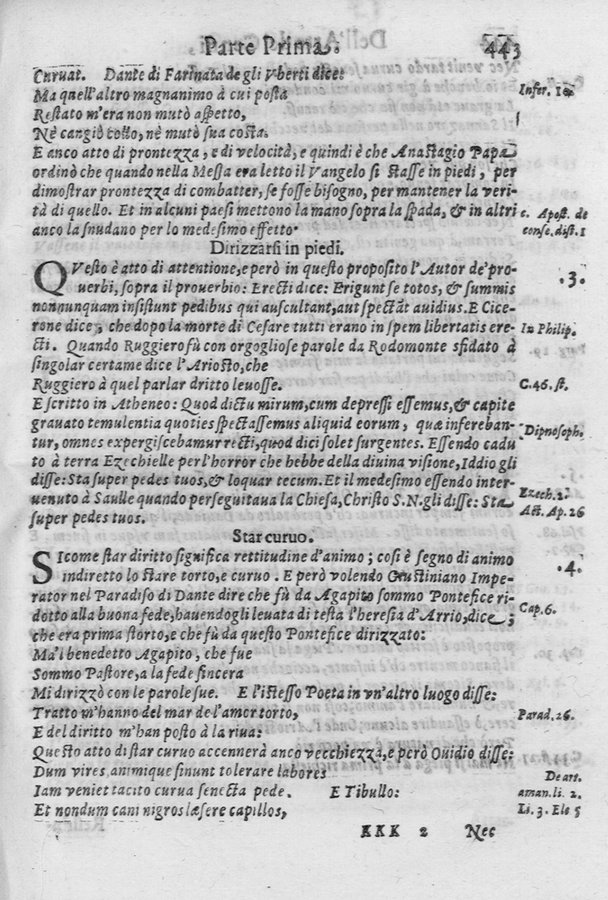 Parte Prima. 443
Curuat. Dante di Farinata de gli Vberti dice:
Ma quell'altro magnanimo à cui posta Infer. 10.
Restato m'era non mutò aspetto,
Nè cangiò collo, nè mutò sua costa.
E anco atto di prontezza, e di velocità, e quindi è che Anastagio Papa
ordinò che quando nella Messa era letto il Vangelo si stasse in piedi, per
dimostrar prontezza di combatter, se fosse bisogno, per mantener la veri-
tà di quello. Et in alcuni paesi mettono la mano sopra la spada, & in altri c. Apost. de
anco la snudano per lo medesimo effetto. conse. dist. 1
Dirizzarsi in piedi.
QVesto è atto di attentione, e però in questo proposito l'Autor de' pro- .3.
uerbi, sopra il prouerbio: Erecti dice: Erigunt se totos, & summis
nonnunquam insistunt pedibus qui auscultant, aut spectāt auidius. E Cice-
rone dice, che dopo la morte di Cesare tutti erano in spem libertatis ere- In Philip.
cti. Quando Ruggiero fù con orgogliose parole da Rodomonte sfidato à
singolar certame dice l'Ariosto, che
Ruggiero à quel parlar dritto leuosse. C. 46. st.
E scritto in Atheneo: Quod dictu mirum, cum depressi essemus, & capite
grauato temulentia quoties spectassemus aliquid eorum, quæ infereban- Dipnosoph.
tur, omnes expergiscebamur recti, quod dici solet surgentes. Essendo cadu
to à terra Ezechielle per l'horror che hebbe della diuina visione, Iddio gli
disse: Sta super pedes tuos, & loquar tecum. Et il medesimo essendo inter- Ezech. 2.
uenuto à Saulle quando perseguitaua la Chiesa, Christo S.N. gli disse: Sta Act. Ap. 26
super pedes tuos.
Star curuo.
SI come star diritto significa rettitudine d'animo; così è segno di animo .4.
indiretto lo stare torto, e curuo. E però volendo Giustiniano Impe-
rator nel Paradiso di Dante dire che fù da Agapito sommo Pontefice ri-
dotto alla buona fede, hauendogli leuata di testa l'heresia d'Arrio, dice; Cap. 6.
che era prima storto, e che fù da questo Pontefice dirizzato:
Ma'l benedetto Agapito, che fue
Sommo Pastore, a la fede sincera
Mi dirizzò con le parole sue. E l'istesso Poeta in vn'altro luogo disse:
Tratto m'hanno del mar de l'amor torto, Parad. 26.
E del diritto m'han posto à la riua:
Questo atto di star curuo accennerà anco vecchiezza, e però Ouidio disse:
Dum vires, animique sinunt tolerare labores De art.
Iam veniet tacito curua senecta pede. E Tibullo: aman. li. 2.
Et nondum cani nigros læsere capillos, Li. 3. Ele 5
KKK 2 Nec